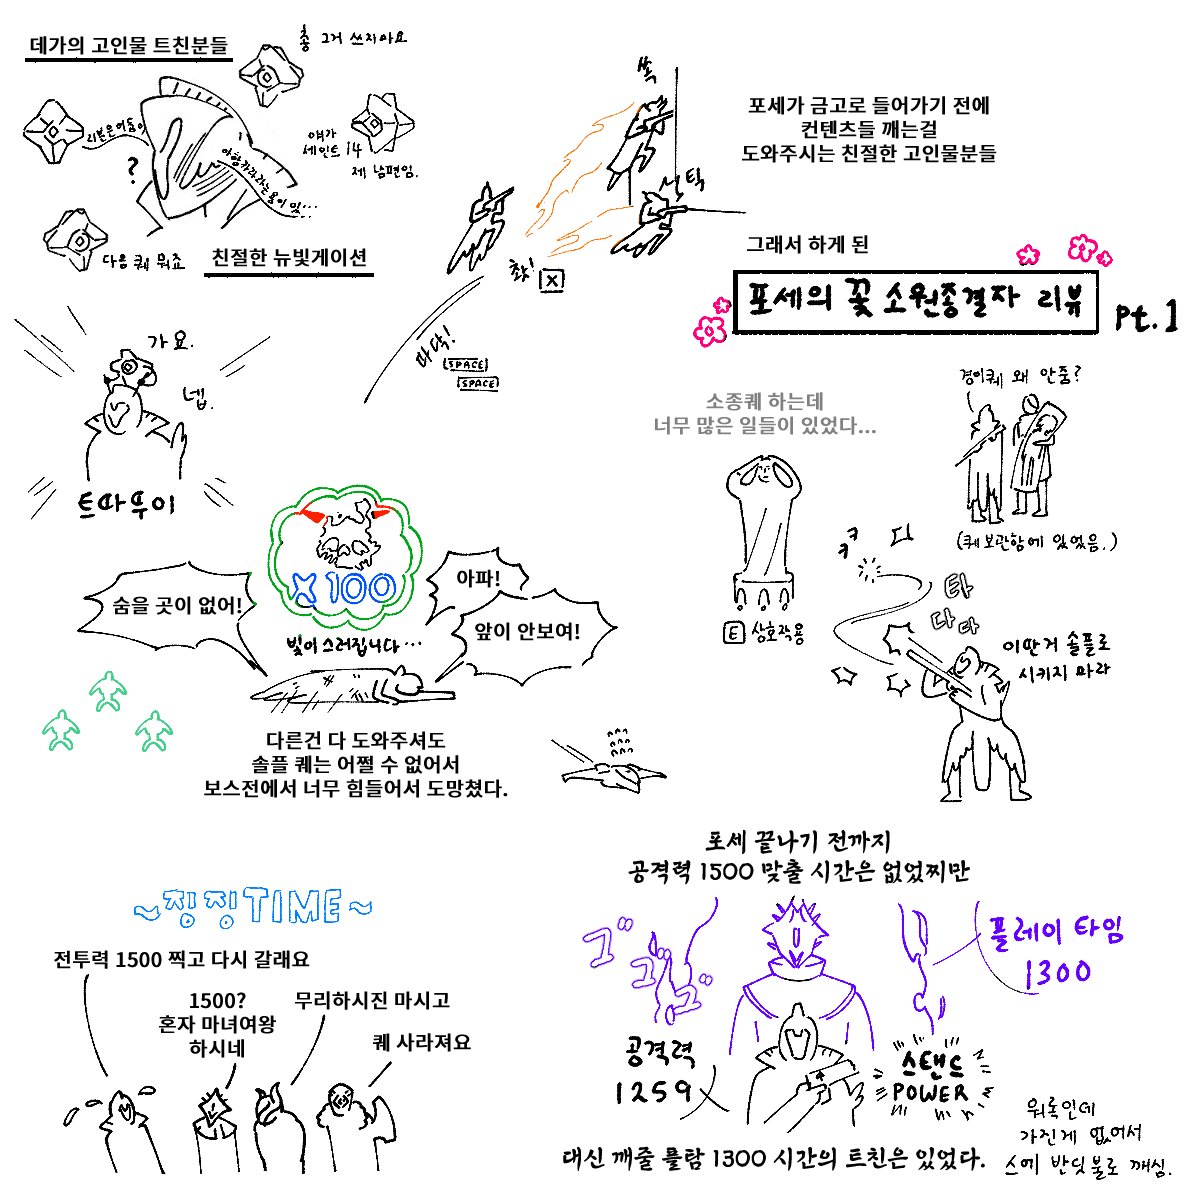 데가의 고인물 트친분들
총 그거 쓰지마요
리본은어둠이
?
야향자라라는율이 있...
얘가
세인트 14
제 남편임.
다음 퀘 뭐죠
친절한 뉴빛게이션
쏙
틱
촷!
X
파닥!
SPACE
SPACE
포세가 금고로 들어가기 전에
컨텐츠들 깨는걸
도와주시는 친절한 고인물분들
그래서 하게 된
포세의 꽃 소원종결자 리뷰
Pt.1
가요.
넵.
트따뚜이
소종퀘 하는데
너무 많은 일들이 있었다...
경이퀘 왜 안줌?
(퀘보관함에 있었음.)
E 상호작용
타
다 다
이딴거 솔플로
시키지 마라
X 100
빛이 스러집니다...
숨을 곳이 없어!
아파!
앞이 안보여!
다른건 다 도와주셔도
솔플 퀘는 어쩔 수 없어서
보스전에서 너무 힘들어서 도망쳤다.
~징징TIME~
전투력 1500 찍고 다시 갈래요
1500?
혼자 마녀여왕
하시네
무리하시진 마시고
퀘 사라져요
포세 끝나기 전까지
공격력 1500 맞출 시간은 없었찌만
그"그"그"
플레이 타임
1300
공격력
1259
스탠드
POWER
대신 깨줄 플탐 1300 시간의 트친은 있었다.
워록인데
가진게 없어서
스에 반딧불로 깨심.